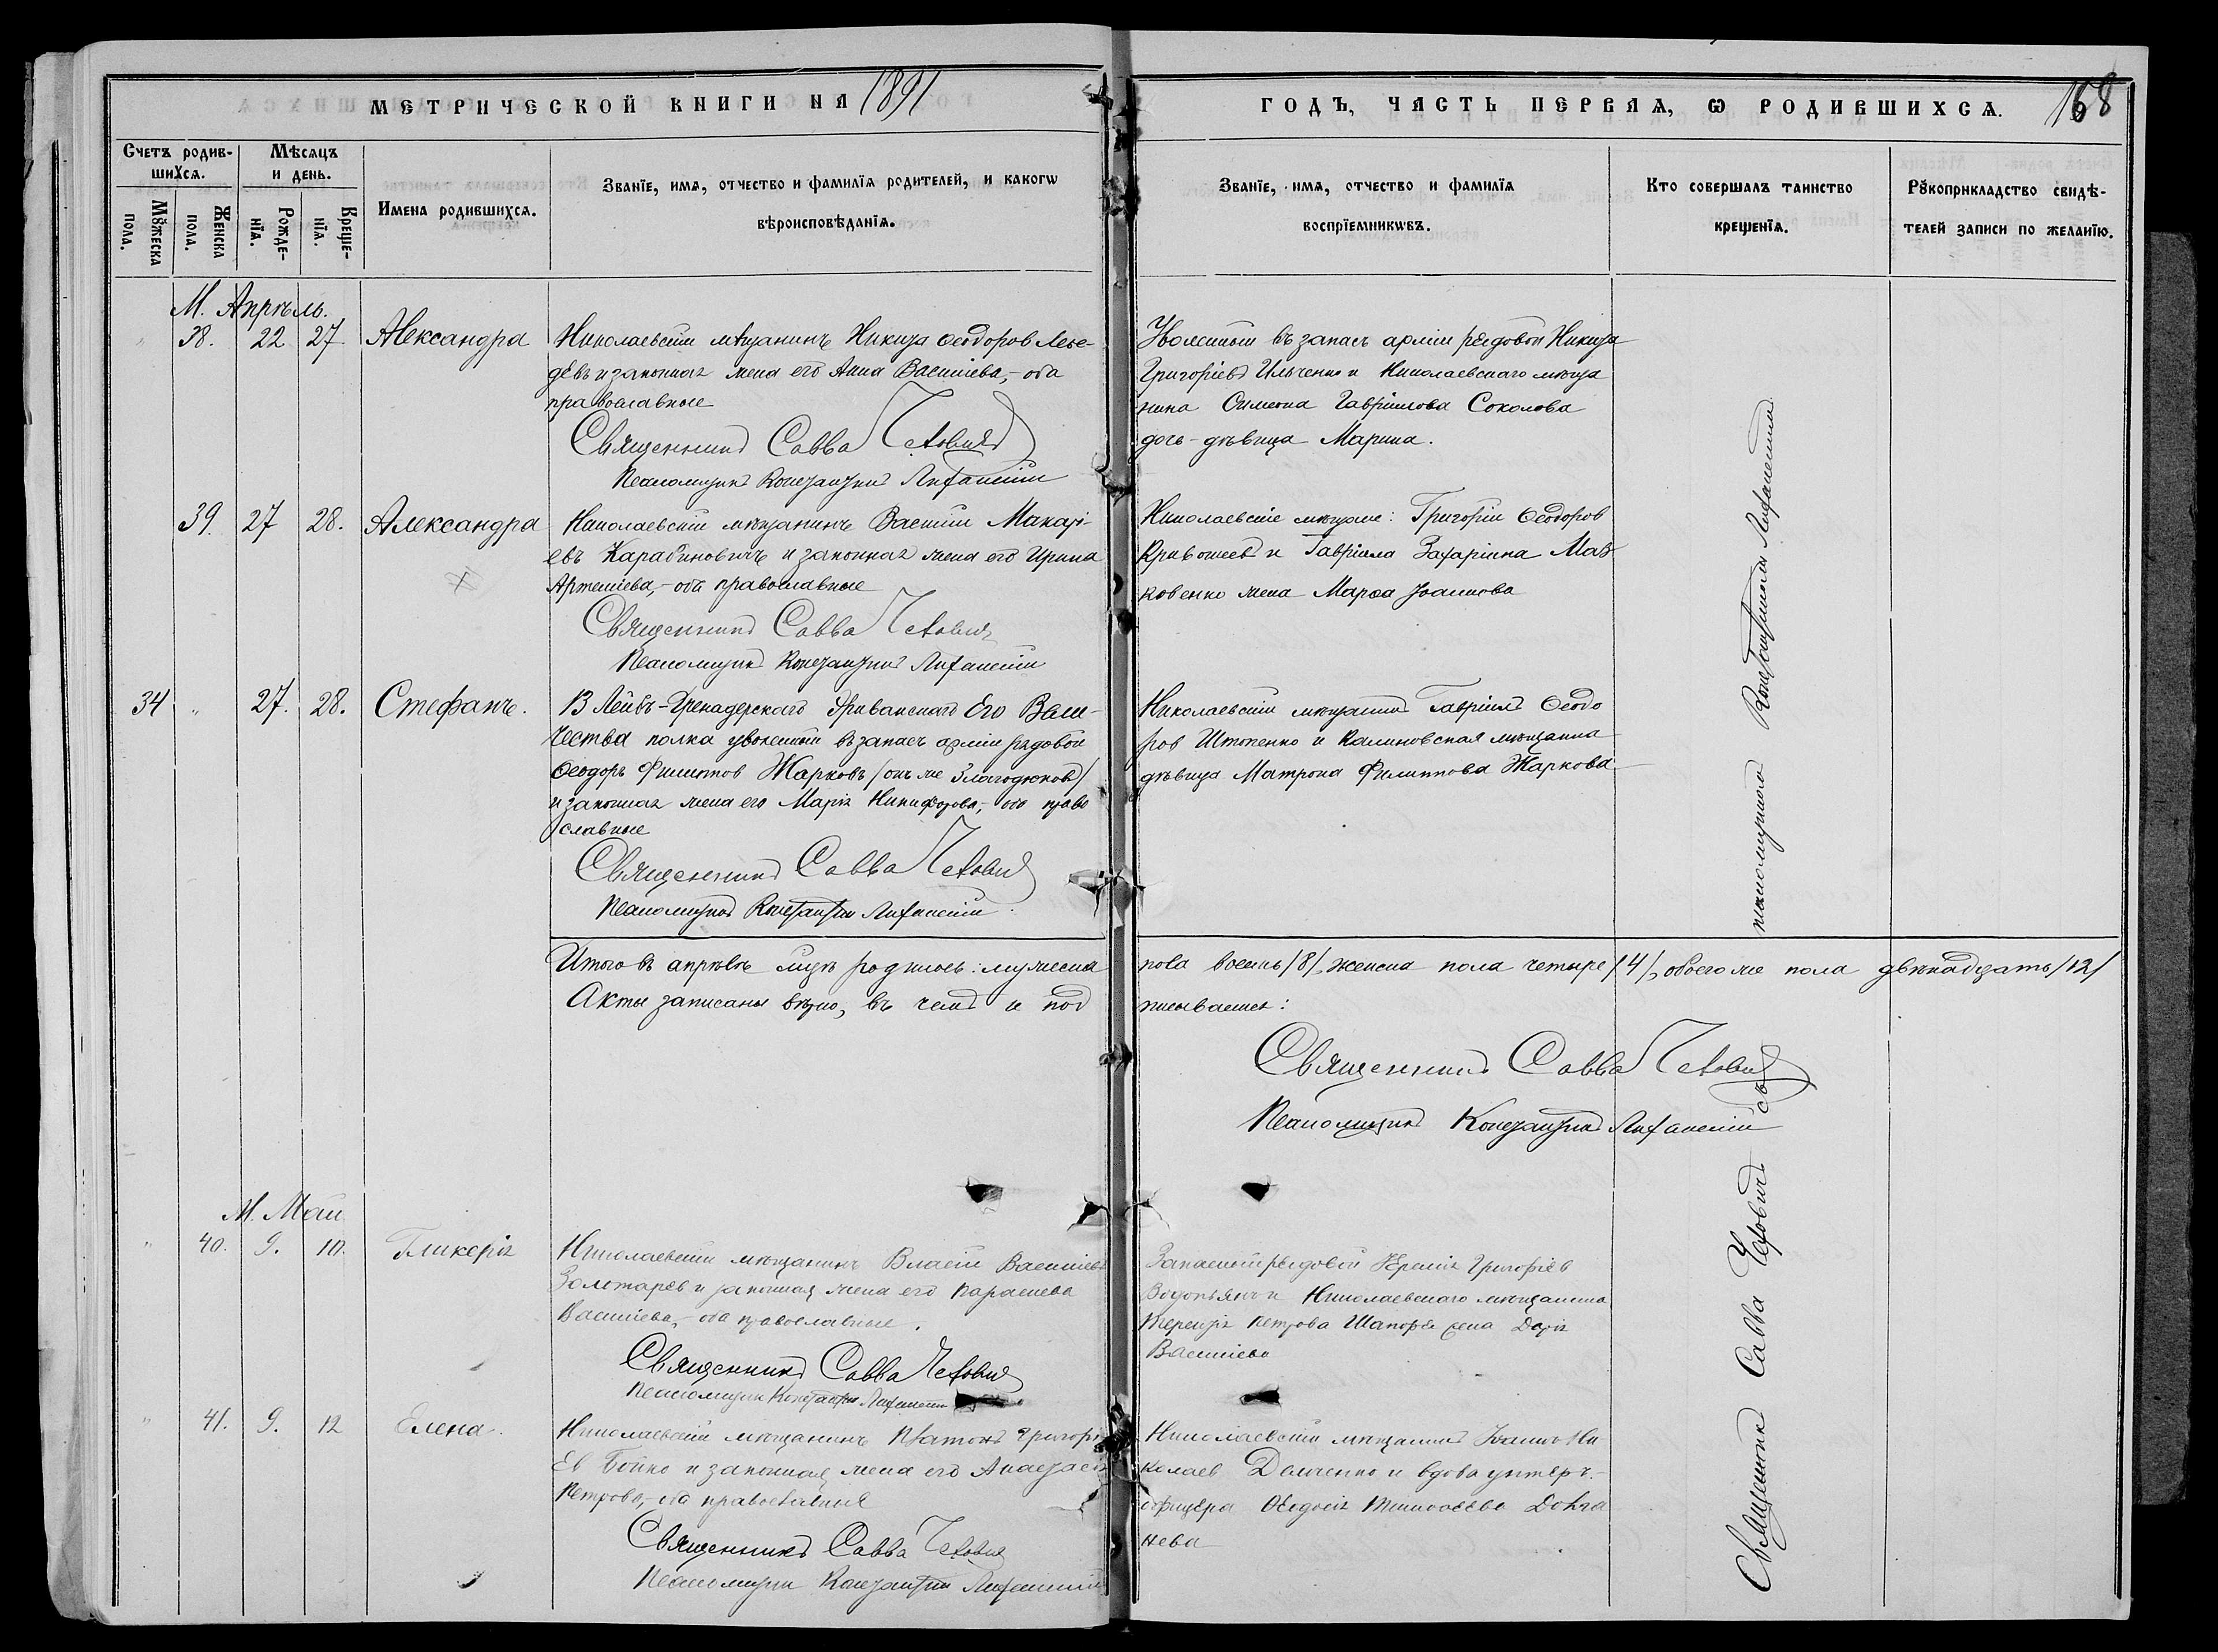 МЕТРИЧЕСКОЙ КНИГИ НА 1891
ГОДЪ, ЧАСТЬ ПЕРВАЯ, Ѡ РОДИВШИХСѦ. 168
Счетъ родив-
шихсѧ.
Мѣсѧцъ
и день.
Мꙋжеска пола.
Женска пола.
Рожде-
нїѧ.
Креще-
нїѧ.
Имена родившихсѧ.
Званїе, имѧ, отчество и фамилїѧ родителей, и какогѡ
вѣроисповѣданїѧ.
Званїе, имѧ, отчество и фамилїѧ
воспрїемникѡвъ.
Кто совершалъ таинство
крещенїѧ.
Рꙋкоприкладство свидѣ-
телей записи по желанїю.
М. Апрѣль.
38. 22 27 Александра
Николаевскій мѣщанинъ Никита Ѳеодоров Лебе-
девъ и законная жена его Анна Василіева, оба
православные
Священникъ Савва
Псаломщикъ Константинъ
Уволенный въ запасъ арміи рядовой Никита
Григоріевъ Ильченко и Николаевскаго мѣща
нина Симеона Гавріилова Соколова
дочь-дѣвица Марина.
39. 27 28. Александра
Николаевскій мѣщанинъ Василій Макарі-
евъ Карабиновичъ и законная жена его Ирина
Артеміева, оба православные
Священникъ Савва
Псаломщикъ Константинъ
Николаевскіе мѣщане: Григорій Ѳеодоров
Кривошеев и Гавріила Захаріина Мав
ковенко жена Марѳа Іоаннова
34 " 27. 28. Стефанъ.
В Лейбъ-Гренадерскаго Эриванскаго Его Вели-
чества полка уволенный въ запасъ арміи рядовой
Ѳеодоръ Филиппов Жарковъ /онъ же Благодюков/
и законная жена его Марія Никифорова, оба право
славные
Священникъ Савва
Псаломщикъ Константин
Николаевскій мѣщанинъ Гавріилъ Ѳеодо
ров Штопенко и Калиновская мѣщанка
дѣвица Матрона Филиппова Жаркова
Итого въ апрѣлѣ мцѣ родилось: мужеска
пола восемь /8/, женска пола четыре /4/, обоего же пола двѣнадцать /12/
Акты записаны вѣрно, въ чемъ и под
писываемся:
Священникъ Савва
Псаломщикъ Константинъ
М. Май
" 40. 9. 10. Гликерія
Николаевскій мѣщанинъ Власій Василіевъ
Золотарев и законная жена его Параскева
Василіева, оба православные.
Священникъ Савва
Псаломщик Константин
Запасный рядовой Ермія Григоріев
Водопьянъ и Николаевскаго мѣщанина
Терентія Петрова жена Дарія
Василіева
" 41. 9. 12 Елена.
Николаевскій мѣщанинъ Платонъ Григорі
ев Бойко и законная жена его Анастасія
Петрова, оба православные
Священникъ Савва
Псаломщик Константин
Николаевскій мѣщанинъ Іоаннъ Ни
колаев Демченко и вдова унтеръ-
офицера Ѳеодосія Тимоѳеева Долга
нева
Священникъ Савва Чехович съ
псаломщиком Константином